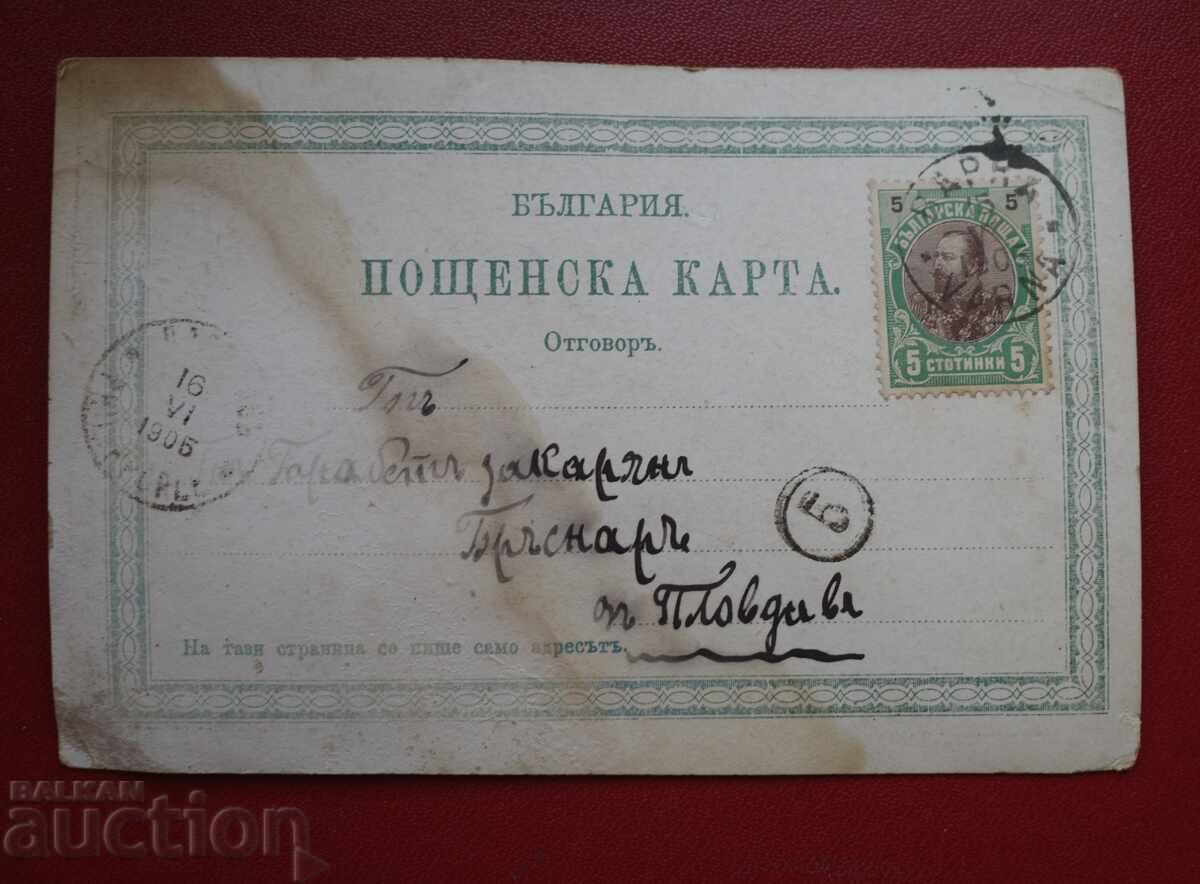 БЪЛГАРИЯ.
ПОЩЕНСКА КАРТА.
Отговоръ.
5 5
БЪЛГАРСКА ПОЩА
5 СТОТИНКИ 5
ВАРНА
VARNA
16
VI
1905
Гнъ
Гарабетъ Закарянъ
Бръснаръ
въ Пловдивъ
Б
На тази страница се пише само адресътъ.
BALKAN
auction